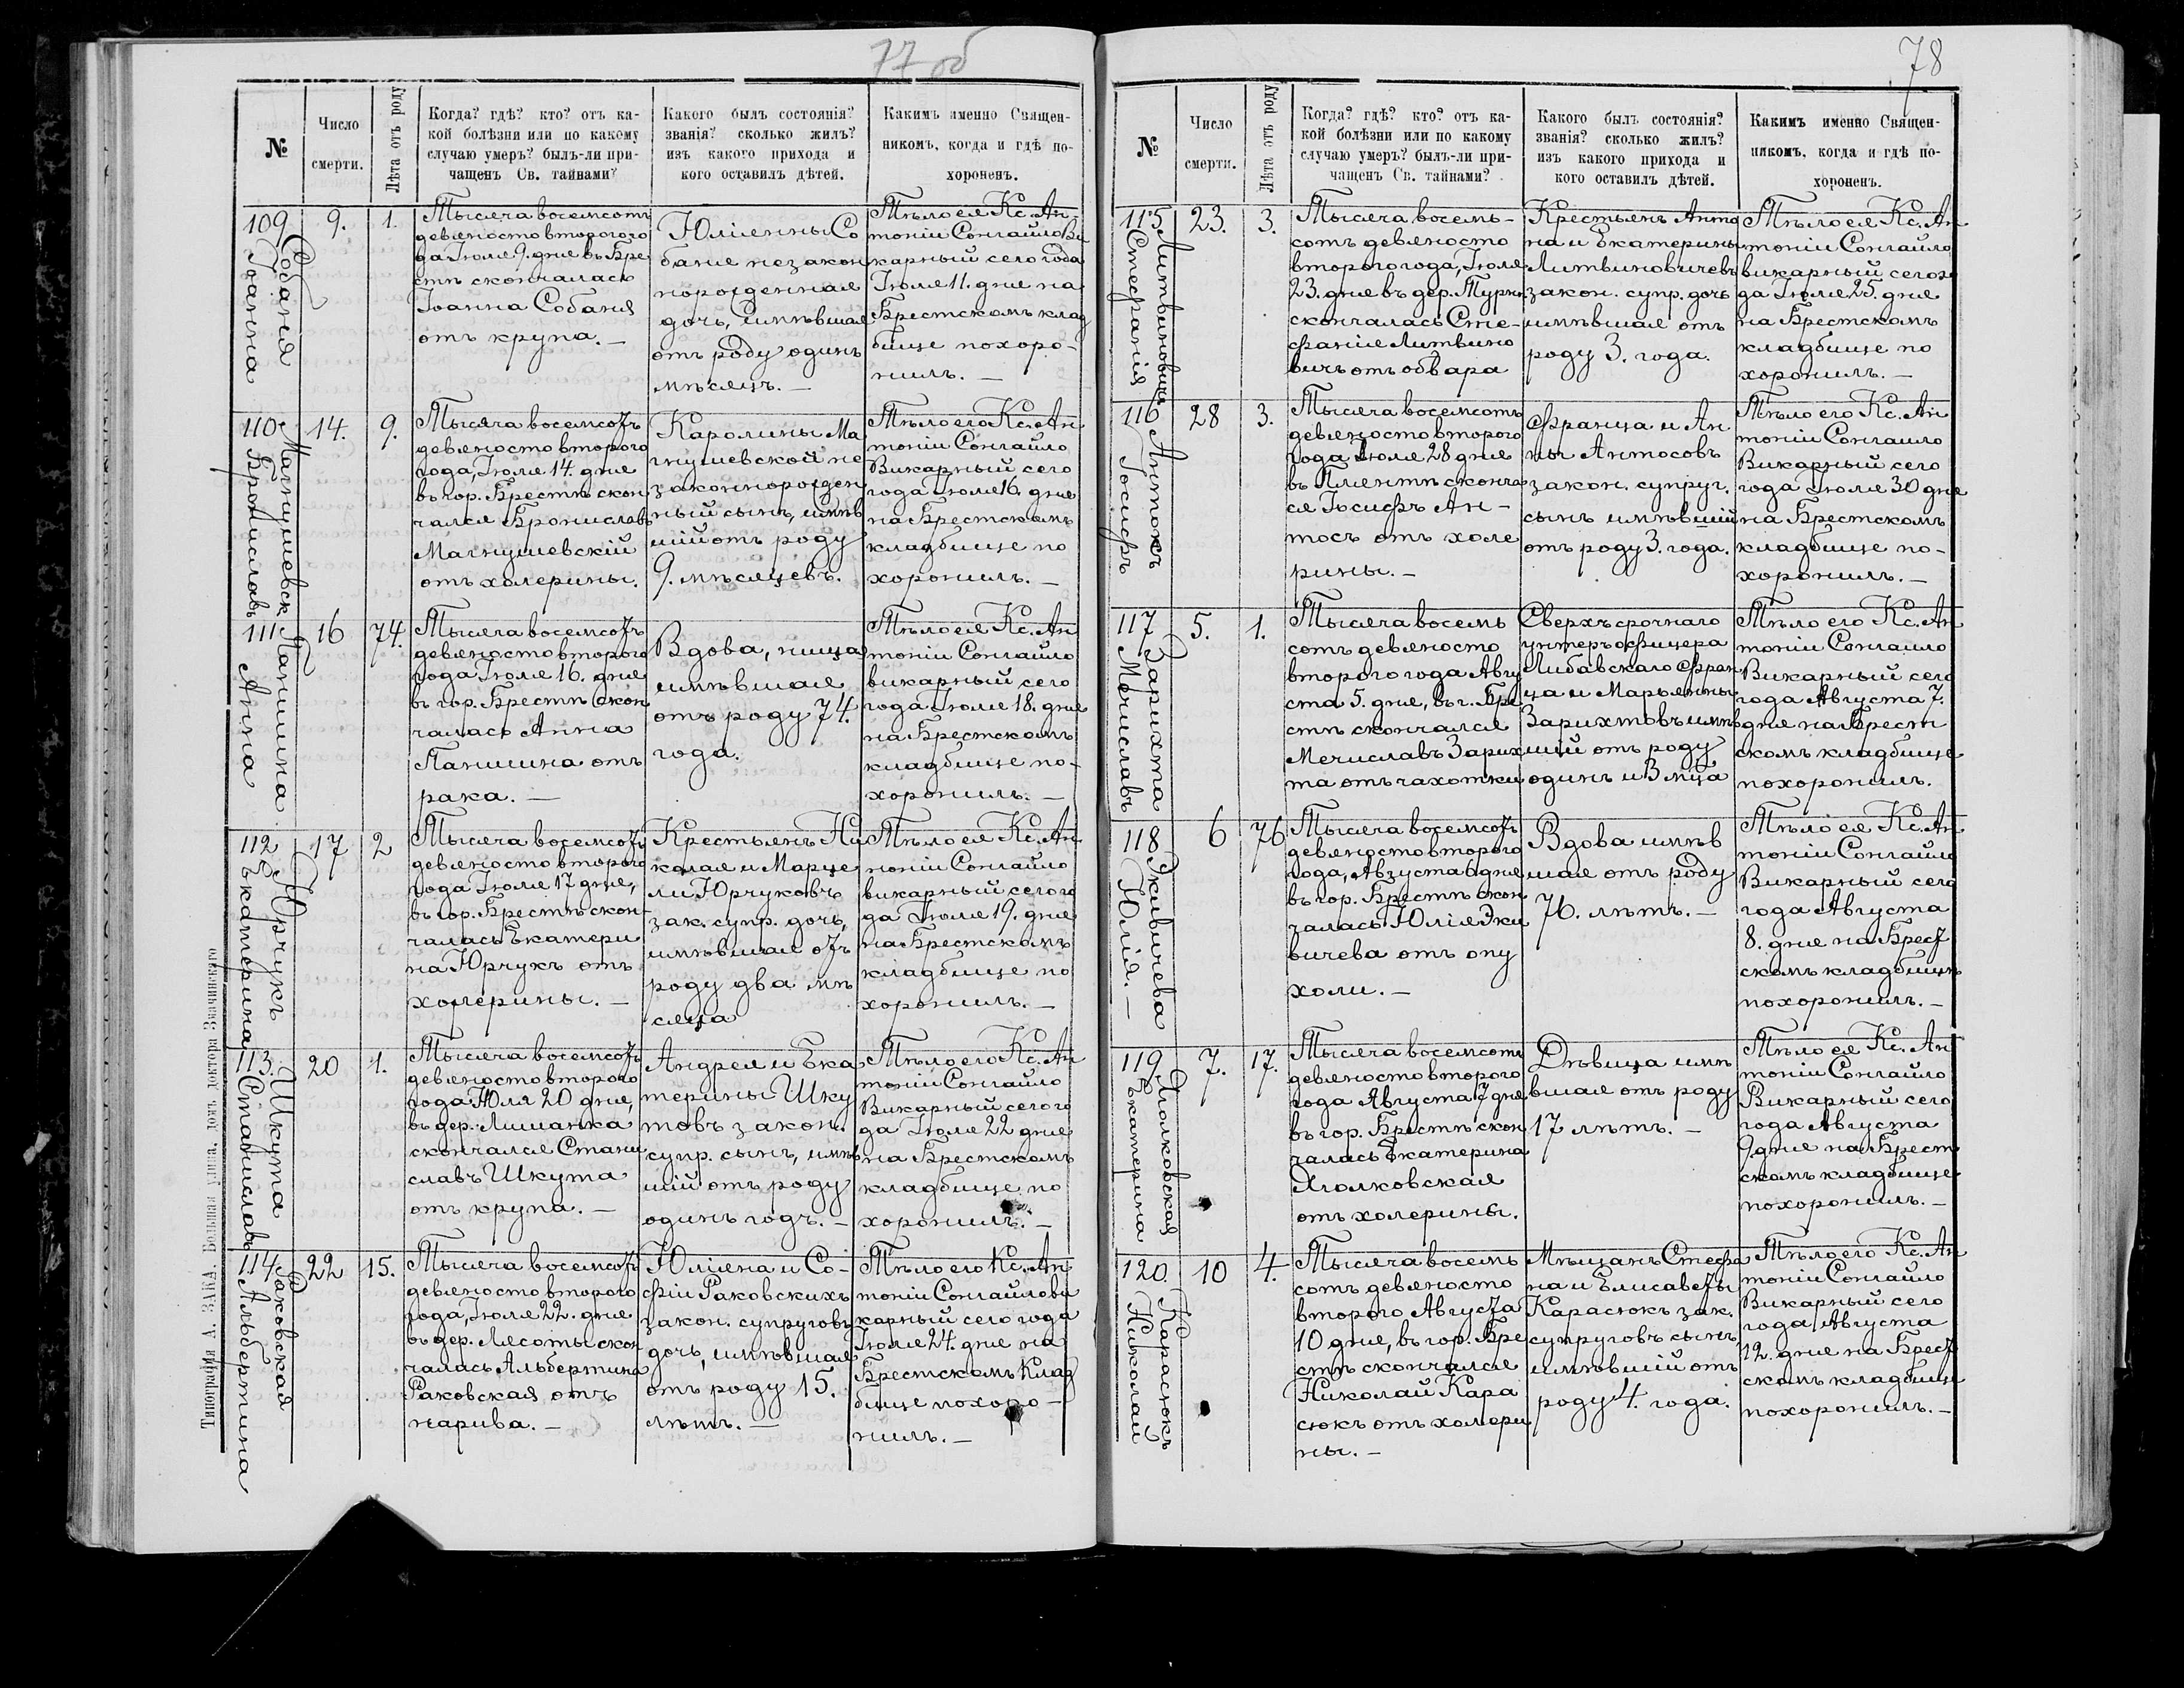 77 об
№
Число
смерти.
Лѣта отъ роду
Когда? гдѣ? кто? отъ ка-
кой болѣзни или по какому
случаю умеръ? былъ-ли при-
чащенъ Св. тайнами?
Какого былъ состоянія?
званія? сколько жилъ?
изъ какого прихода и
кого оставилъ дѣтей.
Какимъ именно Священ-
никомъ, когда и гдѣ по-
хороненъ.
109
Собаня
Іоанна
9.
1.
Тысяча восемсотъ
девяносто второго го
да Іюля 9. дня въ Бре
стѣ скончалась
Іоанна Собаня
отъ крупа. —
Юліянны Со
баня незакон
норожденная
дочь, имѣвшая
отъ роду одинъ
мѣсяцъ. —
Тѣло ея Кс. Ан-
тоній Сонгайло Ви
карный сего года
Іюля 11. дня на
Брестскомъ клад
бище похоро-
нилъ. —
110
Магнушевск
Брониславъ
14.
9.
Тысяча восемсотъ
девяносто второго
года, Іюля 14. дня
въ гор. Брестѣ скон
чался Брониславъ
Магнушевскій
отъ холерины.
Каролины Ма
гнушевской не
законнорожден
ный сынъ, имѣв
шій отъ роду
9. мѣсяцевъ.
Тѣло его Кс. Ан
тоній Сонгайло
Викарный сего
года Іюля 16. дня
на Брестскомъ
кладбище по
хоронилъ. —
111
Паншина
Анна
16
74.
Тысяча восемсотъ
девяносто второго
года Іюля 16. дня
въ гор. Брестѣ скон
чалась Анна
Паншина отъ
рака. —
Вдова, нища
имѣвшая
отъ роду 74.
года.
Тѣло ея Кс. Ан
тоній Сонгайло
викарный сего
года Іюля 18. дня
на Брестскомъ
кладбище по-
хоронилъ. —
112
Юрчукъ
Екатерина
17
2
Тысяча восемсотъ
девяносто второго
года Іюля 17 дня,
въ гор. Брестѣ скон-
чалась Екатери
на Юрчукъ отъ
холерины. —
Крестьянъ Ни
колая и Марце
ли Юрчуковъ
зак. супр. дочь,
имѣвшая отъ
роду два мѣ
сяца
Тѣло ея Кс. Ан
тоній Сонгайло
викарный сего го
да Іюля 19. дня
на Брестскомъ
кладбище по
хоронилъ. —
113.
Шкута
Станиславъ
20
1.
Тысяча восемсотъ
девяносто второго
года Юля 20 дня,
въ дер. Лишанка
скончался Стани
славъ Шкута
отъ крупа. —
Андрея и Ека
терины Шку
товъ закон.
супр. сынъ, имѣв
шій отъ роду
одинъ годъ. —
Тѣло его Кс. Ан
тоній Сонгайло
Викарный сего го
да Іюля 22 дня
на Брестскомъ
кладбище по
хоронилъ. —
114.
Раковская
Альбертина
22
15.
Тысяча восемсотъ
девяносто второго
года, Іюля 22. дня
въ дер. Лясоты скон
чалась Альбертина
Раковская отъ
нарива. —
Юліяна и Со-
фіи Раковскихъ
закон. супруговъ
дочь, имѣвшая
отъ роду 15.
лѣтъ. —
Тѣло его Кс. Ан
тоній Сонгайло ви
карный сего года
Іюля 24. дня на
Брестскомъ Клад
бище похоро-
нилъ. —
Типографія А. ЗАКА. Большая улица, домъ доктора Значинскаго
78
№
Число
смерти.
Лѣта отъ роду
Когда? гдѣ? кто? отъ ка-
кой болѣзни или по какому
случаю умеръ? былъ-ли при-
чащенъ Св. тайнами?
Какого былъ состоянія?
званія? сколько жилъ?
изъ какого прихода и
кого оставилъ дѣтей.
Какимъ именно Священ-
никомъ, когда и гдѣ по-
хороненъ.
115
Литвиновичъ
Стефанія
23.
3.
Тысяча восемь-
сотъ девяносто
второго года, Іюля
23. дня въ дер. Турн.
скончалась Сте-
фанія Литвино
вичъ отъ обвара
Крестьянъ Анто
на и Екатерины
Литвиновичевъ
закон. супр. дочь
имѣвшая отъ
роду 3. года.
Тѣло ея Кс. Ан
тоній Сонгайло
викарный сего го
да Іюля 25. дня
на Брестскомъ
кладбище по
хоронилъ. —
116
Антосъ
Іосифъ
28
3.
Тысяча восемсотъ
девяносто второго
года Іюля 28 дня
въ Плянтѣ сконча
ся Іосифъ Ан-
тосъ отъ холе
рины. —
Франца и Ан
ны Антосовъ
закон. супруг.
сынъ имѣвшій
отъ роду 3. года.
Тѣло его Кс. Ан
тоній Сонгайло
Викарный сего
года Іюля 30 дня
на Брестскомъ
кладбище по-
хоронилъ. —
117
Зарихта
Мечиславъ
5.
1.
Тысяча восемь
сотъ девяносто
второго года Авгу
ста 5. дня, въ г. Бре
стѣ скончался
Мечиславъ Зарих
та отъ чахотки
Сверхъсрочнаго
унтеръ офицера
Либавскаго Фран
ца и Марьянны
Зарихтовъ имѣв
шій отъ роду
одинъ и 3 мца
Тѣло его Кс. Ан
тоній Сонгайло
Викарный сего
года Августа 7.
дня на Брест
скомъ кладбище
похоронилъ.
118
Экивичева
Юлія. —
6
76
Тысяча восемсотъ
девяносто второго
года, Августа 6 дня
въ гор. Брестѣ скон
чалась Юлія Эки
вичева отъ опу
холи. —
Вдова имѣв
шая отъ роду
76. лѣтъ. —
Тѣло ея Кс. Ан
тоній Сонгайло
Викарный сего
года Августа
8. дня на Брест
скомъ кладбищѣ
похоронилъ. —
119
Яголковская
Екатерина
7.
17.
Тысяча восемсотъ
девяносто второго
года Августа 7 дня
въ гор. Брестѣ скон
чалась Екатерина
Яголковская
отъ холерины.
Дѣвица имѣ
вшая отъ роду
17 лѣтъ. —
Тѣло ея Кс. Ан
тоній Сонгайло
Викарный сего
года Августа
9 дня на Брест
скомъ кладбище
похоронилъ. —
120.
Карасюкъ
Николай
10
4.
Тысяча восемь
сотъ девяносто
второго Августа
10 дня, въ гор. Бре
стѣ скончался
Николай Кара
сюкъ отъ холери
ны. —
Мѣщанъ Стефа
на и Елисаветы
Карасюкъ зак.
супруговъ сынъ
имѣвшій отъ
роду 4. года.
Тѣло его Кс. Ан
тоній Сонгайло
Викарный сего
года Августа
12. дня на Брест
скомъ кладбище
похоронилъ. —